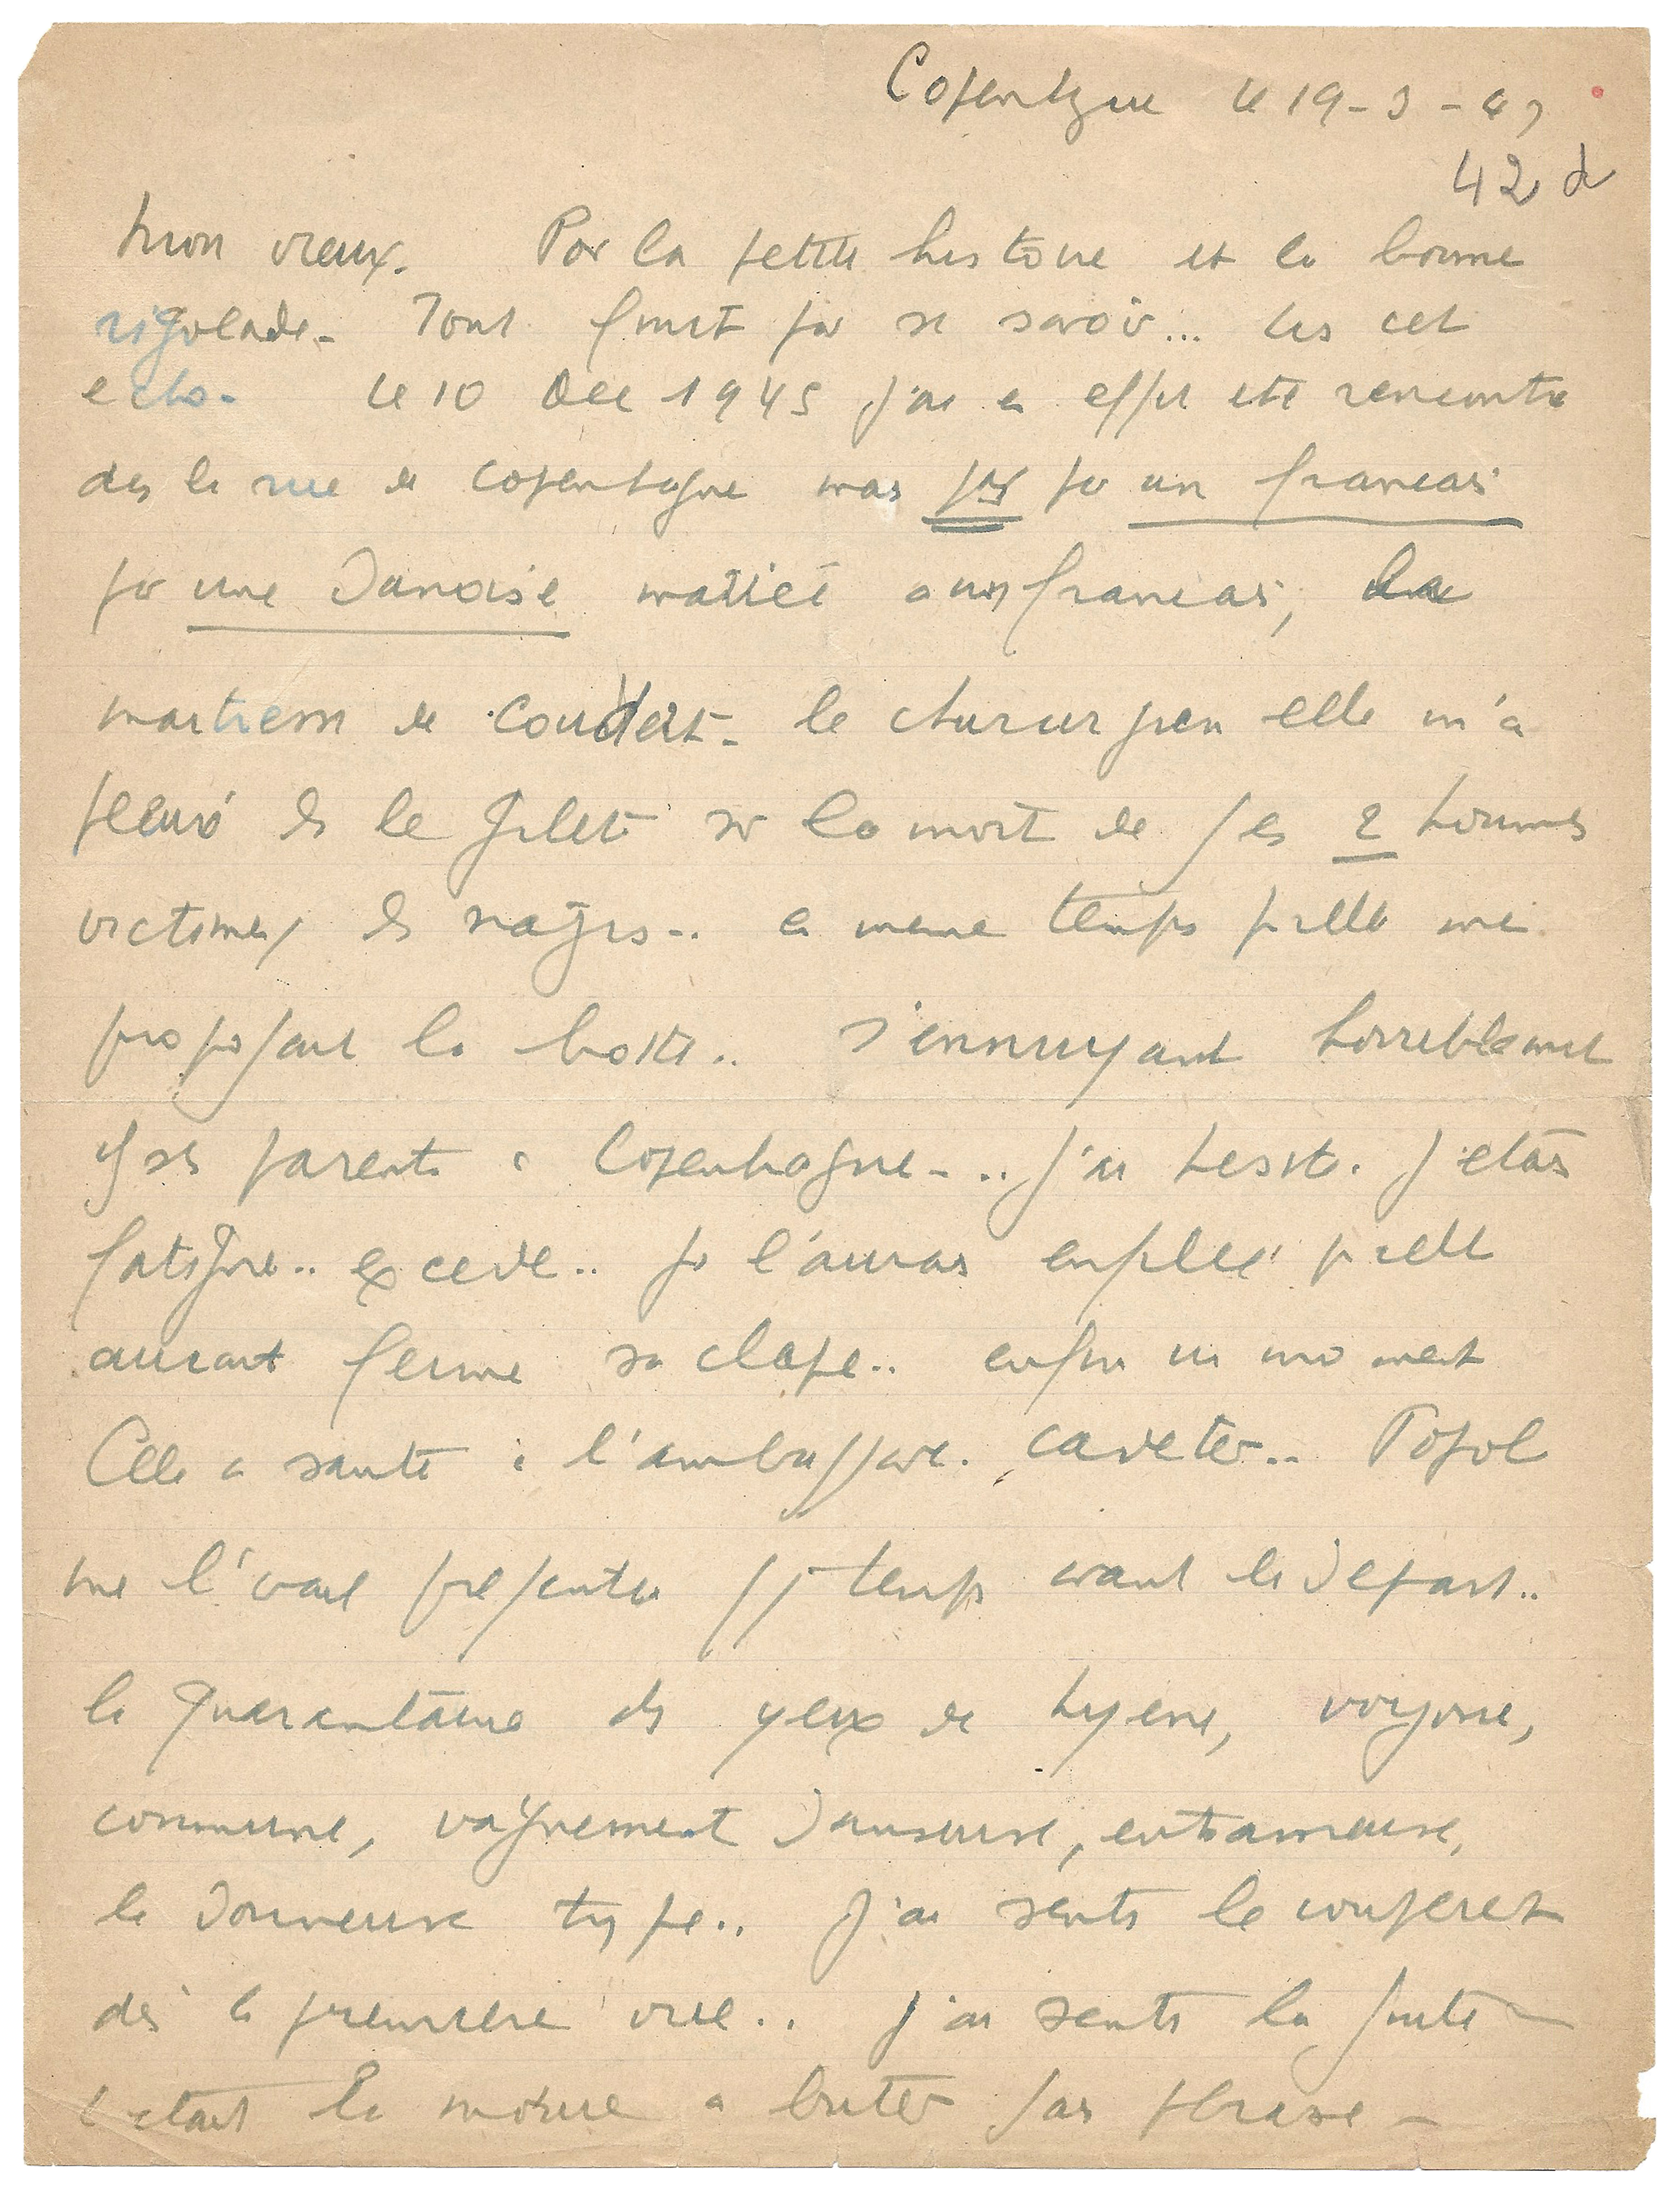 Copenhague le 19-3-47
42 d
Mon vieux. Par la petite histoire et la bonne
rigolade. Tout finit par se savoir... Lis cet
echo. Le 10 Dec 1945 j'ai en effet été rencontré
ds la rue à Copenhague mais pas par un francais
par une Danoise mariée a un francais,
maitresse de Coudert. le chirurgien elle m'a
pleuré ds le gilet sur la mort de ses 2 hommes
victimes des nazis.. en meme temps qu'elle me
proposait la botte.. s'ennuyant horriblement
chez ses parents à Copenhague... j'ai hesité. J'etais
fatigué.. excedé.. je l'aurais enfilée si elle
aurait fermé sa clape.. enfin un moment
Elle a sauté à l'ambassade. cafeter.. Popol
me l'avait présentée qq temps avant le Départ..
la quarantaine des yeux de hyene, voyoue,
commune, vaguement Danseuse, entraineuse,
la Donneuse type.. J'ai senti le couperet
dès la premiere vue.. j'ai senti la suite -
c'etait la moure a buter sans phrase -